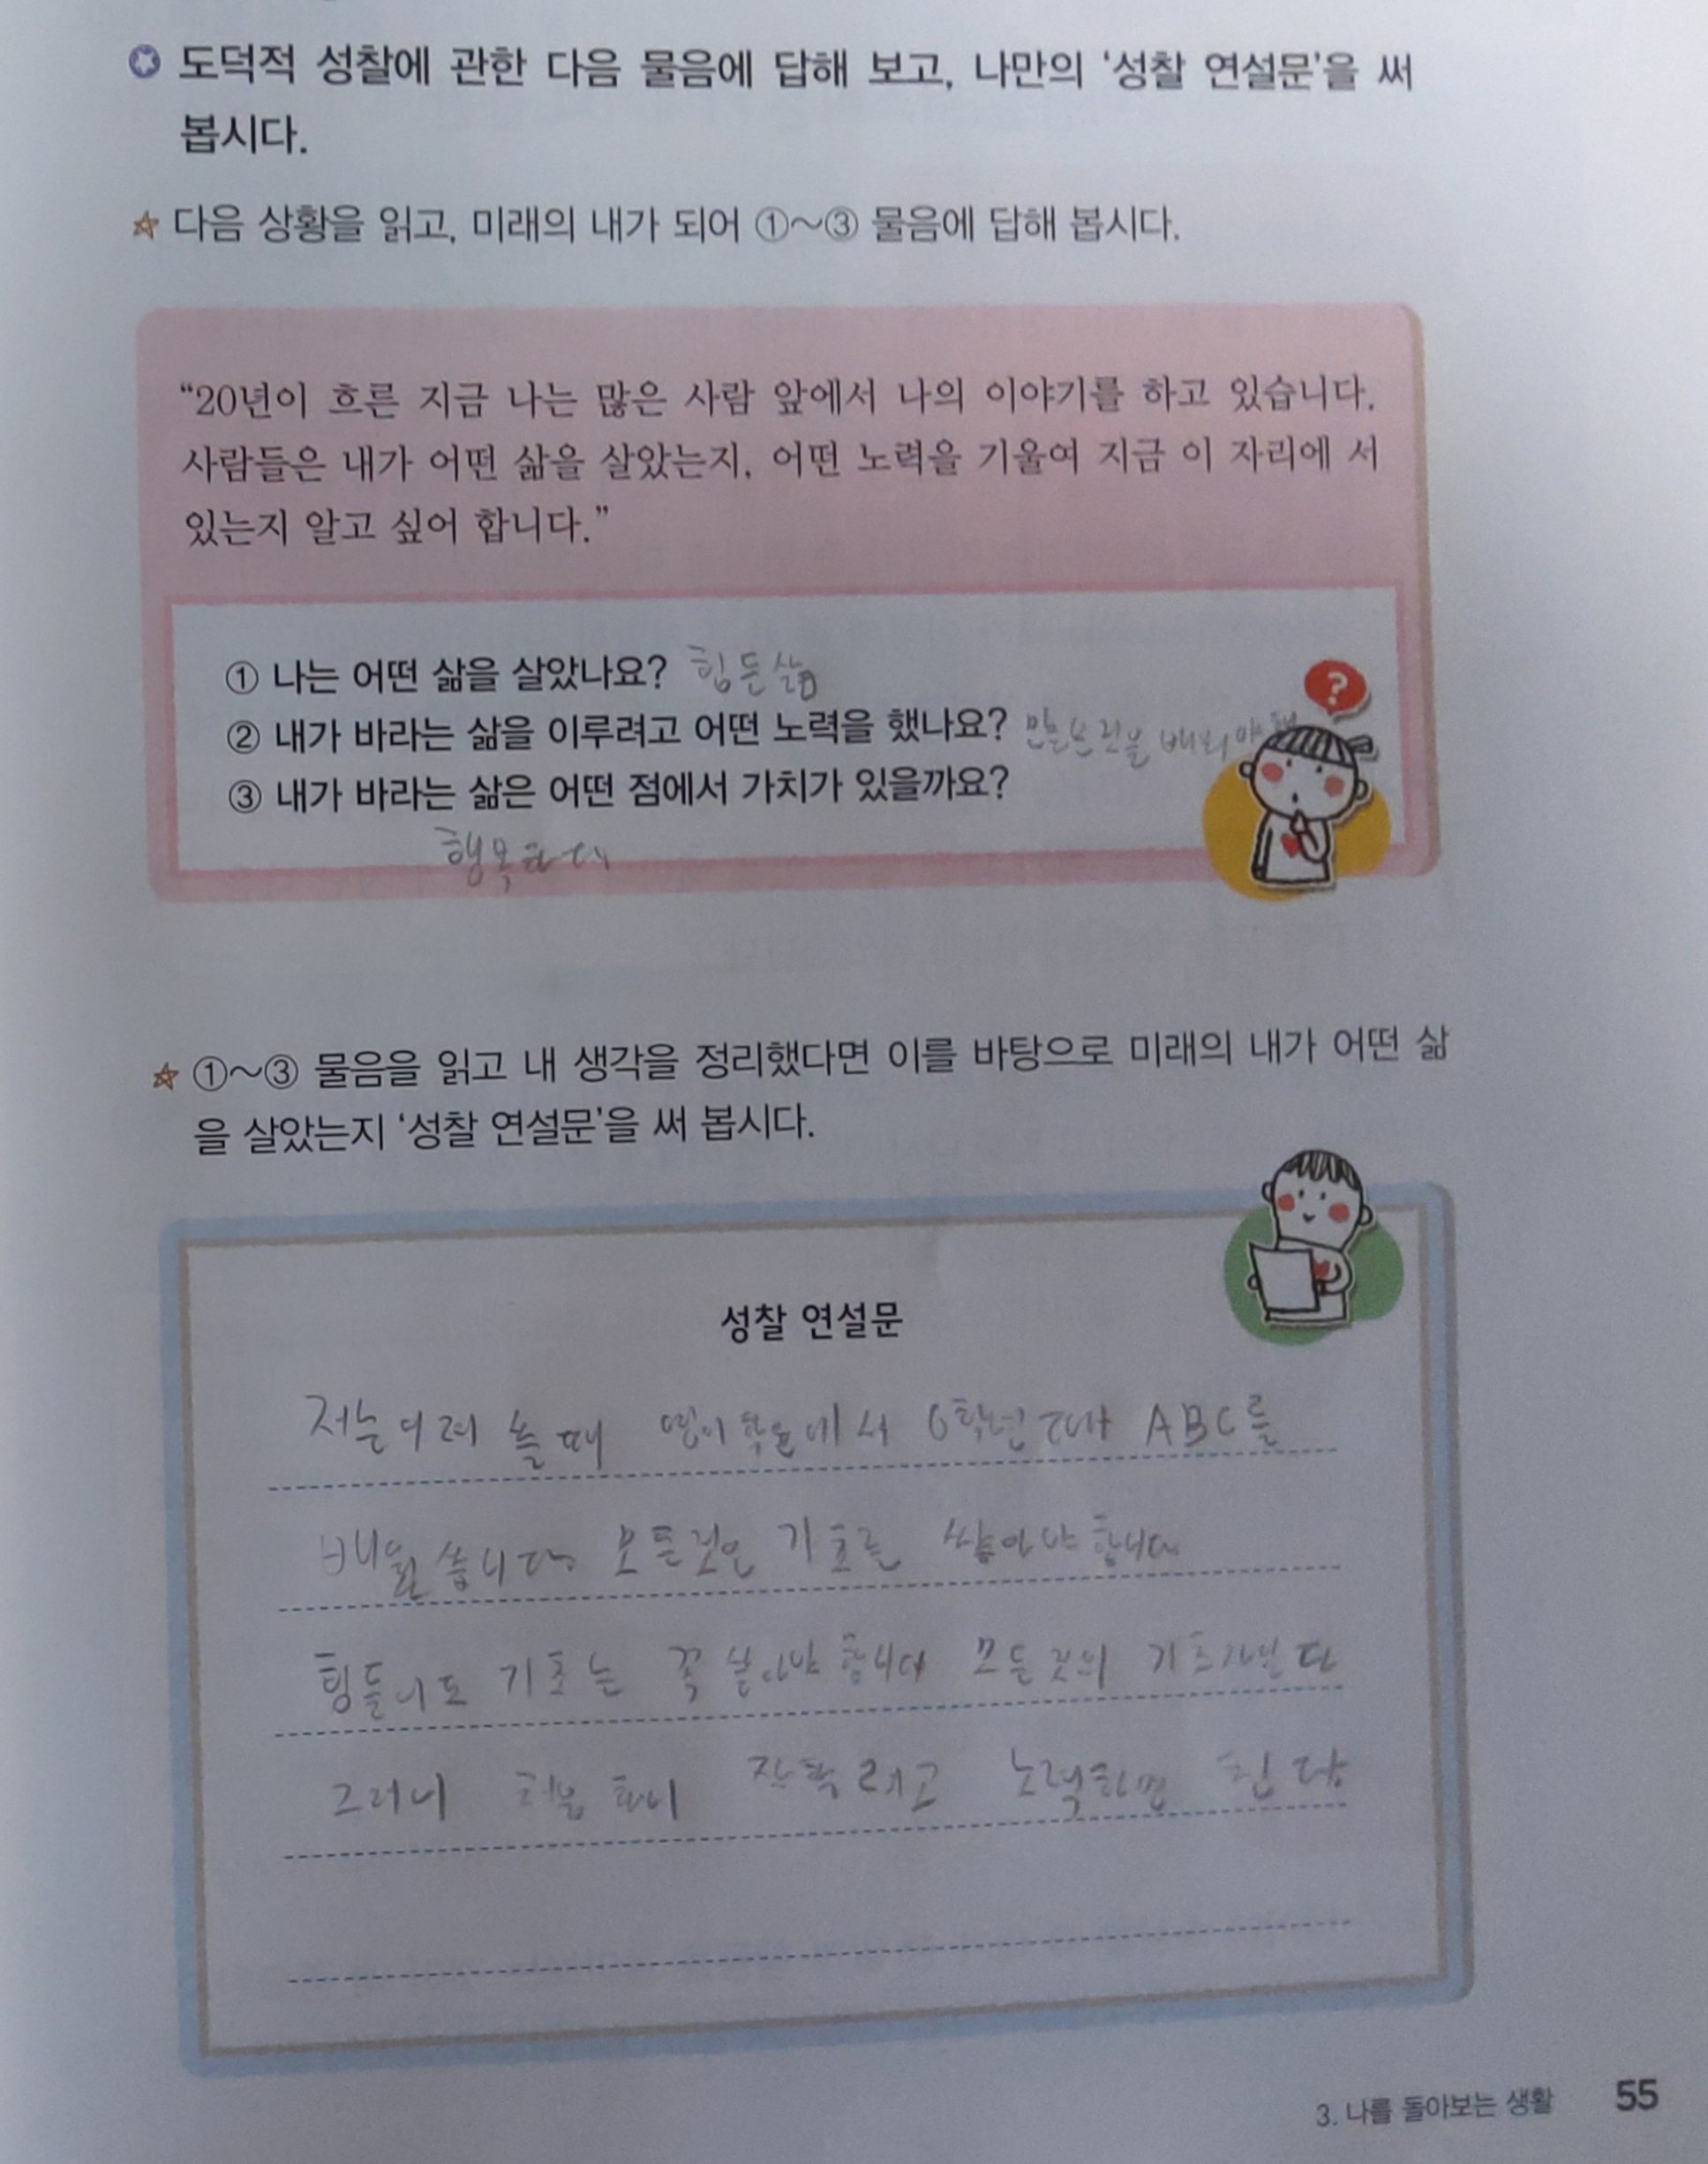 도덕적 성찰에 관한 다음 물음에 답해 보고, 나만의 ‘성찰 연설문’을 써
봅시다.
다음 상황을 읽고, 미래의 내가 되어 ①~③ 물음에 답해 봅시다.
“20년이 흐른 지금 나는 많은 사람 앞에서 나의 이야기를 하고 있습니다.
사람들은 내가 어떤 삶을 살았는지, 어떤 노력을 기울여 지금 이 자리에 서
있는지 알고 싶어 합니다.”
① 나는 어떤 삶을 살았나요? 힘든삶
② 내가 바라는 삶을 이루려고 어떤 노력을 했나요?
?
③ 내가 바라는 삶은 어떤 점에서 가치가 있을까요?
행복하다
①~③ 물음을 읽고 내 생각을 정리했다면 이를 바탕으로 미래의 내가 어떤 삶
을 살았는지 ‘성찰 연설문’을 써 봅시다.
성찰 연설문
저는 어려 때 6학년 ABC를
배웠습니다 모든것은 기초를 쌓아야 합니다
힘들어도 기초는 꼭 합니다 모든것의
그러니 노력하면 된다
3. 나를 돌아보는 생활 55